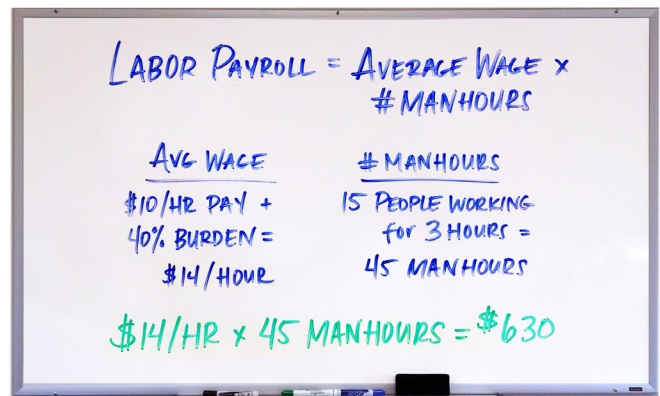 LABOR PAYROLL = AVERAGE WAGE x
# MANHOURS
AVG WAGE
$10/HR PAY +
40% BURDEN =
$14/HOUR
# MANHOURS
15 PEOPLE WORKING
for 3 HOURS =
45 MANHOURS
$14/HR x 45 MANHOURS = $630